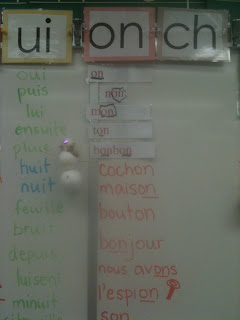 ui
oui
puis
lui
ensuite
pluie
huit
nuit
feuille
bruit
depuis
luisent
minuit
on
on
non
mon
ton
bonbon
cochon
maison
bouton
bonjour
nous avons
l'espion
son
ch